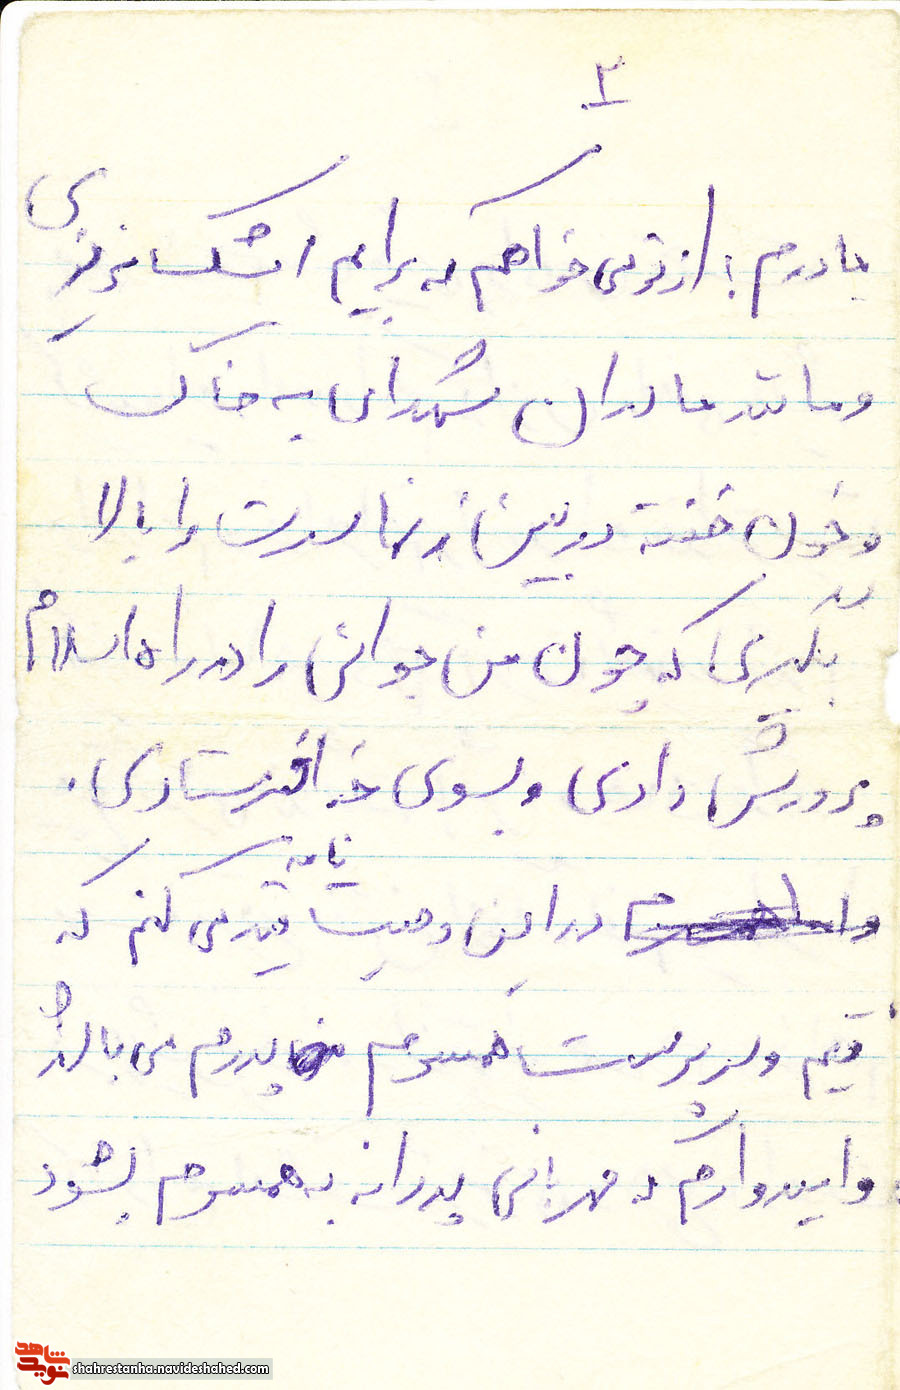 ۳
مادرم! از تو می خواهم که برایم اشک نریزی
و مانند مادران شهدای به خاک
و خون خفته در بین از نما سرت را بالا
بگیری که چون من جوانی را در راه اسلام
پرورش دادی و بسوی خدا فرستادی.
و در این وصیت نامه قید می کنم که
قیم و سرپرست همسرم پدرم می باشد
و امیدوارم که مهربانی پدرانه به همسرم بشود
شاهد
نوید
shahrestanha.navideshahed.com